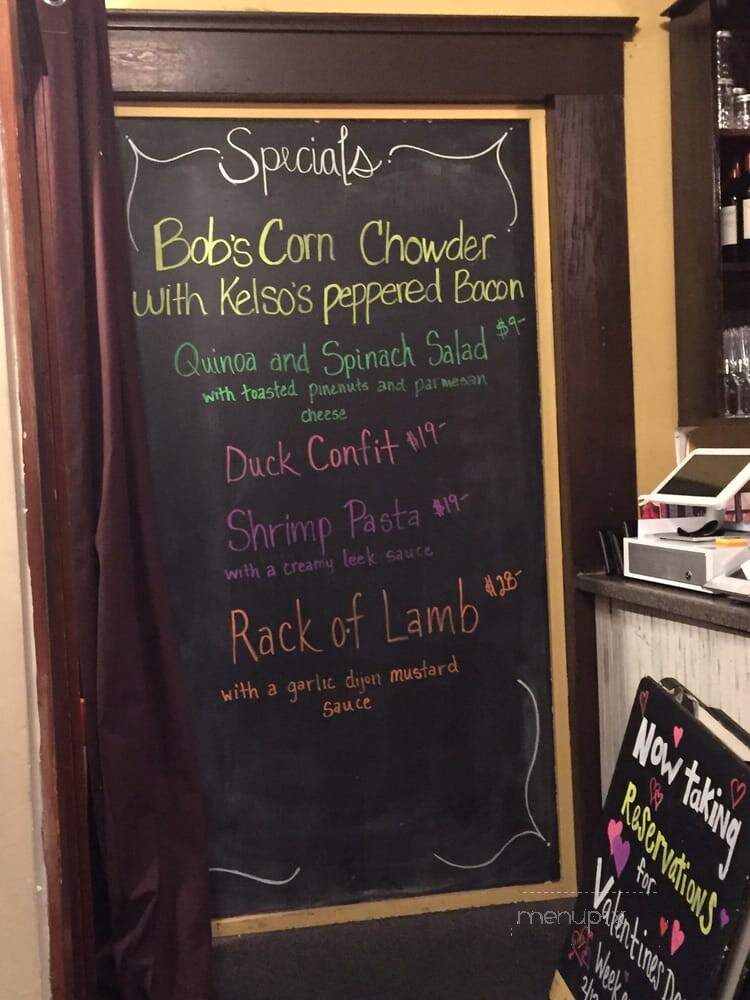 Specials
Bob's Corn Chowder
with Kelso's peppered Bacon
Quinoa and Spinach Salad $9-
with toasted pinenuts and parmesan
cheese
Duck Confit $19-
Shrimp Pasta $19-
with a creamy leek sauce
Rack of Lamb $28-
with a garlic dijon mustard
sauce
Now taking
Reservations
for
Valentines
Week